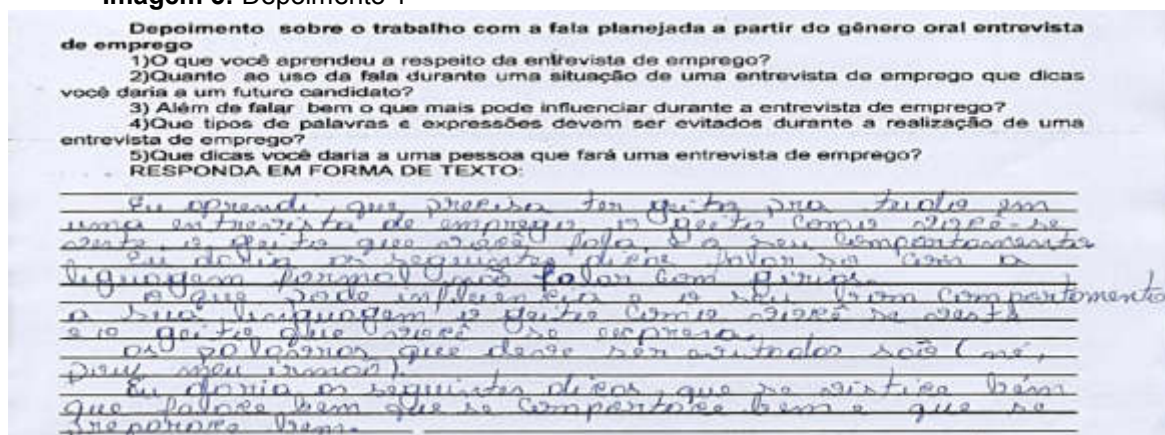 Imagem 3: Depoimento 1
Depoimento sobre o trabalho com a fala planejada a partir do gênero oral entrevista
de emprego
1)O que você aprendeu a respeito da entrevista de emprego?
2)Quanto ao uso da fala durante uma situação de uma entrevista de emprego que dicas
você daria a um futuro candidato?
3) Além de falar bem o que mais pode influenciar durante a entrevista de emprego?
4)Que tipos de palavras e expressões devem ser evitados durante a realização de uma
entrevista de emprego?
5)Que dicas você daria a uma pessoa que fará uma entrevista de emprego?
RESPONDA EM FORMA DE TEXTO:
Eu aprendi que precisa ter geito pra tudo em
uma entrevista de emprego o geito como você-se
veste, o geito que você fala, e o seu comportamento
Eu daria as seguintes dicas falar so com a
liguagem formal não falar com girias.
o que pode influencia e o seu bom comportamento
a sua linguagem o geito como você se veste
e o geito que você se expresa.
as palavras que deve ser evitadas são (né,
pow meu irmão).
Eu daria as seguintes dicas, que se vistice bem
que falace bem que se comportace bem e que se
preparace bem.